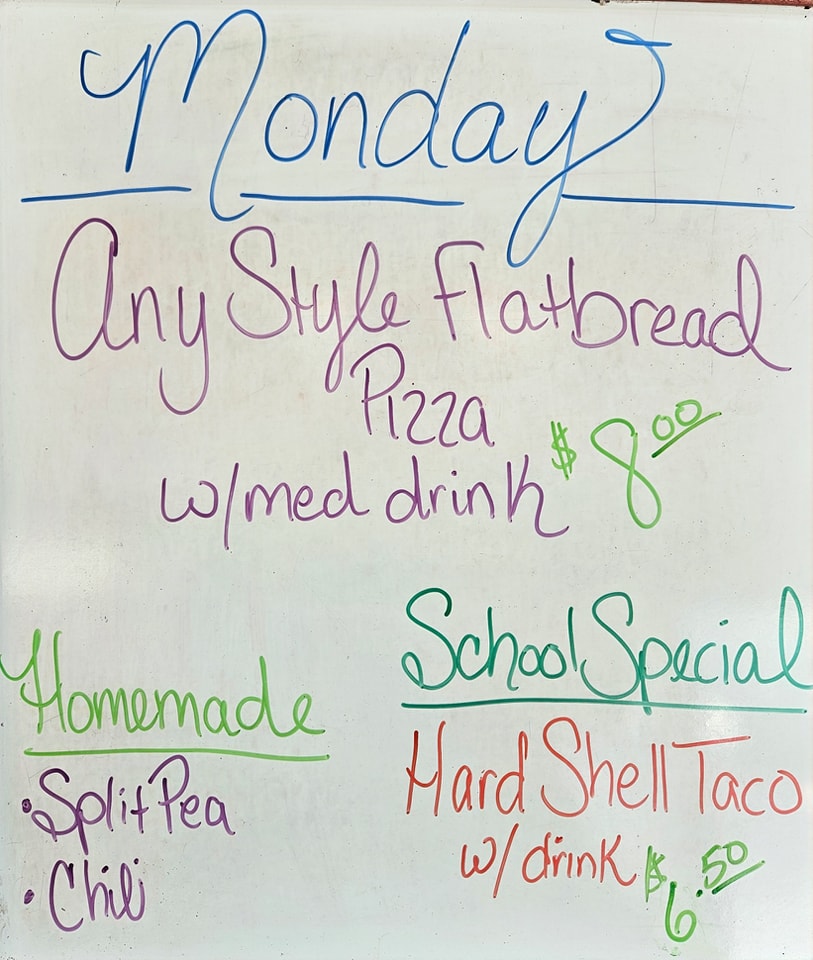 Monday
Any Style Flatbread
Pizza
w/med drink $8.00
Homemade
• Split Pea
• Chili
School Special
Hard Shell Taco
w/ drink $6.50